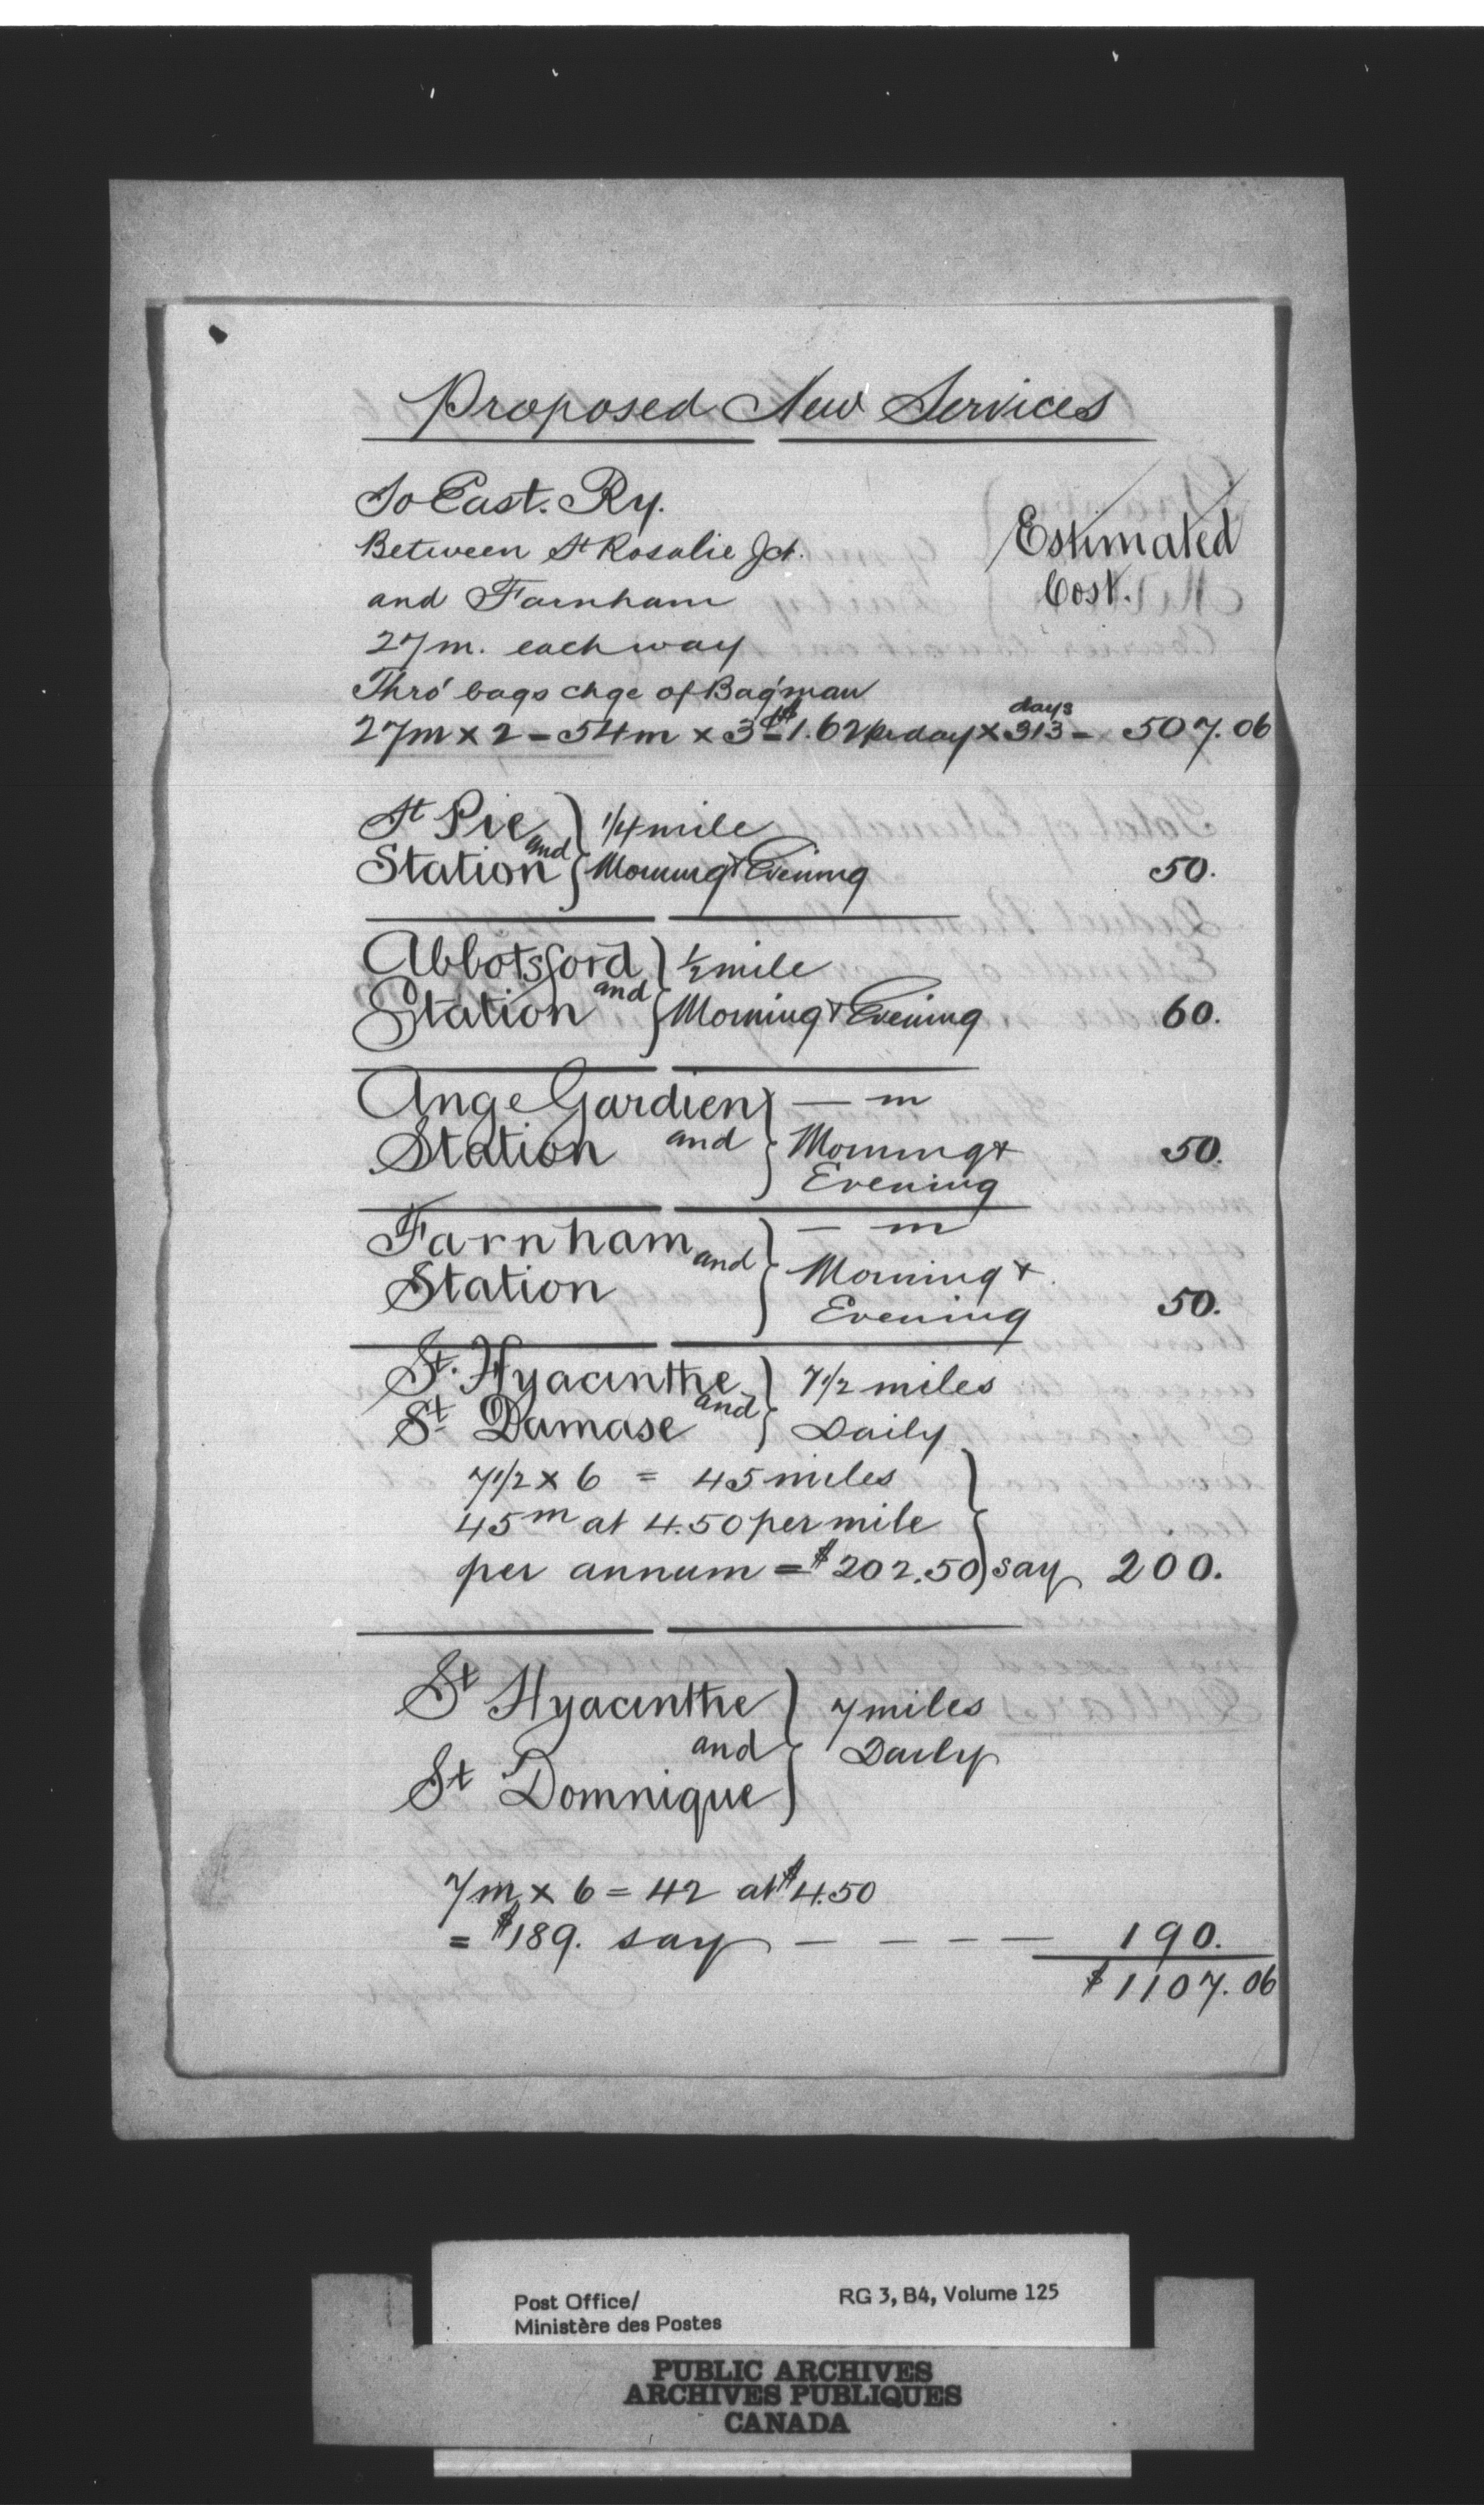 Proposed New Services
So East. Ry.
Estimated
Cost.
Between St Rosalie Jct.
and Farnham
27 m. each way
Thro' bags chge of Bag'man
27m x 2 = 54m x 3¢ = $1.62 per day x 313 days = 507.06
St Pie and } 1/4 mile
Station } Morning & Evening 50.
Abbotsford and } 1/2 mile
Station } Morning & Evening 60.
Ange Gardien } — m
Station and } Morning & 50.
Evening
Farnham and } — m
Station } Morning &
Evening 50.
St. Hyacinthe and } 7 1/2 miles
St Damase } Daily
7 1/2 x 6 = 45 miles
45m at 4.50 per mile
per annum = $202.50 } say 200.
St Hyacinthe } 7 miles
and } Daily
St Domnique
7m x 6 = 42 at $4.50
= $189. say — — — — 190.
$1107.06
Post Office/
Ministère des Postes
RG 3, B4, Volume 125
PUBLIC ARCHIVES
ARCHIVES PUBLIQUES
CANADA